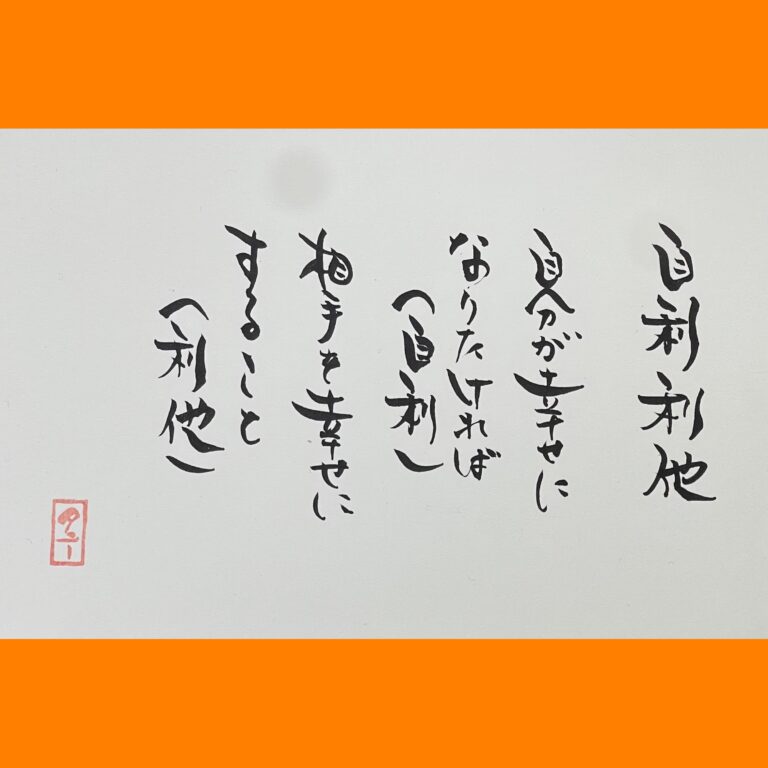 自利利他
自分が幸せに
なりたければ
(自利)
相手を幸せに
すること
(利他)